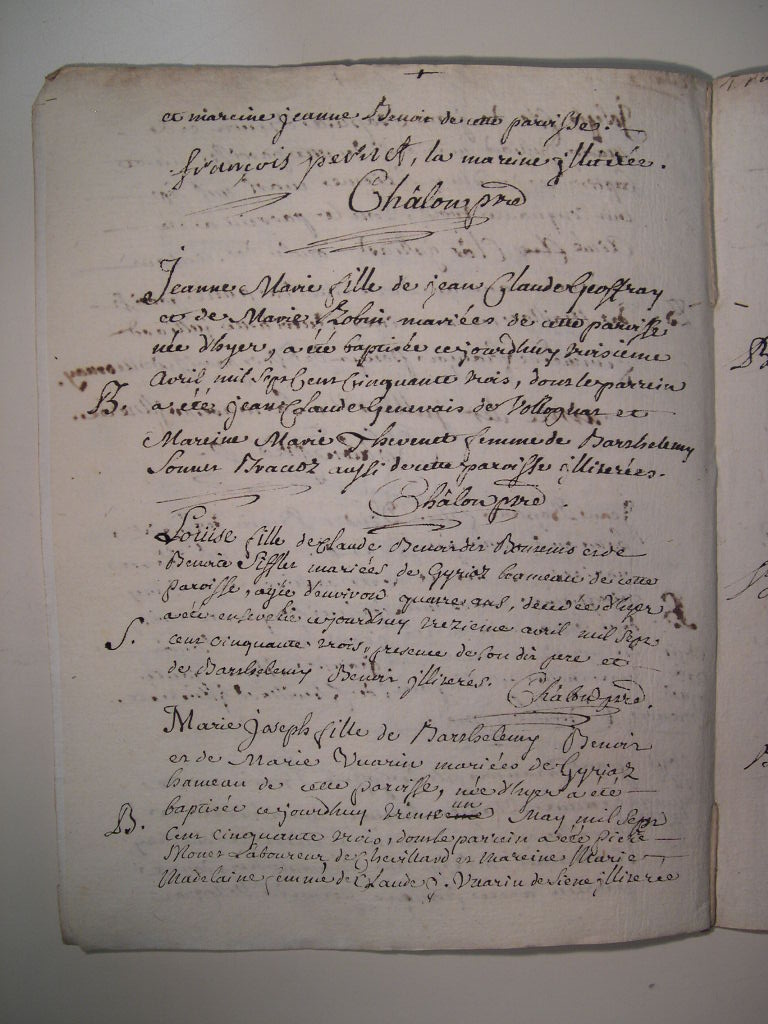 et mareine jeanne Benoit de cette paroisse.
françois perrit, la mareine illiterée.
Châlon pvre
Jeanne Marie fille de jean Claude Geoffray
et de Marie Robin mariées de cette paroisse
née d'hyer, a été baptisée cejourdhuy troisieme
Avril mil sept Cent Cinquante trois, dont le parrein
B. a été jean Claude Genevais de Vollognat et
Mareine Marie Thevenet femme de Barthelemy
Sonnet Bracoz aussi de cette paroisse illiterées.
Châlon pvre.
Louise fille de Claude Benoit dit et de
Benoita Sifflet mariées de Gyriaz hameau de cette
paroisse, agée d'environ quatre ans, decedée d'hyer
a été ensevelie cejourdhuy trezieme avril mil sept
S. cent cinquante trois, presence de son dit pere et
de Barthelemy Benoit illiterés. Châlon pvre.
Marie Joseph fille de Barthelemy Benoit
et de Marie Vuarin mariées de Gyriaz
hameau de cette paroisse, née d'hyer a été
baptisée cejourdhuy trente un May mil sept
B. Cent cinquante trois, dont le parrein a été pierre
Monet Laboureur de Chevillard et Mareine Marie
Madelaine femme de Claude j. Vuarin de illiterée